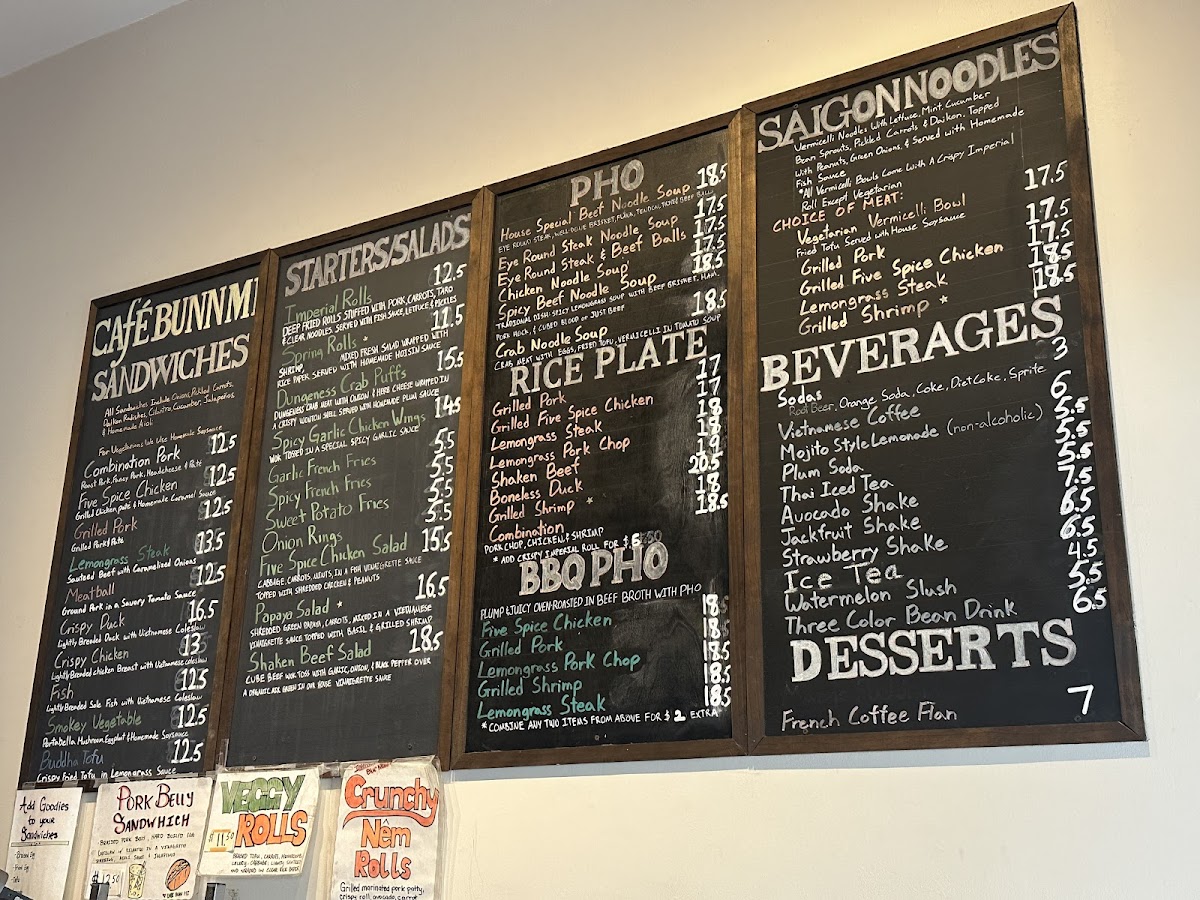 CAfé BUNN MI
SANDWICHES
All Sandwiches Include Onions, Pickled Carrots,
Daikon Radishes, Cilantro, Cucumber, Jalapeños
& Homemade Aioli
For Vegetarians We Use Homemade Soysauce
Combination Pork 12.5
Roast Pork, Fancy Pork, Headcheese & Paté
Five Spice Chicken 12.5
Grilled Chicken paté & Homemade Caramel Sauce
Grilled Pork 12.5
Grilled Pork & Pate
Lemongrass Steak 13.5
Sauteed Beef with Caramelized Onions
Meatball 12.5
Ground Pork in a Savory Tomato Sauce
Crispy Duck 16.5
Lightly Breaded Duck with Vietnamese Coleslaw
Crispy Chicken 13
Lightly Breaded chicken Breast with Vietnamese coleslaw
Fish 12.5
Lightly Breaded Sole Fish with Vietnamese Coleslaw
Smokey Vegetable 12.5
Portabella Mushroom, Eggplant & Homemade Soysauce
Buddha Tofu 12.5
Crispy Fried Tofu in Lemongrass Sauce
STARTERS/SALADS
Imperial Rolls 12.5
DEEP FRIED ROLLS STUFFED WITH PORK, CARROTS, TARO
& CLEAR NOODLES. SERVED WITH FISH SAUCE, LETTUCE & PICKLES
Spring Rolls * 11.5
SHRIMP, MIXED FRESH SALAD WRAPPED WITH
RICE PAPER SERVED WITH HOMEMADE HOISIN SAUCE
Dungeness Crab Puffs 15.5
DUNGENESS CRAB MEAT WITH ONION & HERB CHEESE WRAPPED IN
A CRISPY WONTON SHELL SERVED WITH HOMEMADE PLUM SAUCE
Spicy Garlic Chicken Wings 14.5
WOK TOSSED IN A SPECIAL SPICY GARLIC SAUCE
Garlic French Fries 5.5
Spicy French Fries 5.5
Sweet Potato Fries 5.5
Onion Rings 5.5
Five Spice Chicken Salad 15.5
CABBAGE, CARROTS, MINTS, IN A FISH VINEGRETTE SAUCE
TOPPED WITH SHREDDED CHICKEN & PEANUTS
Papaya Salad * 16.5
SHREDDED GREEN PAPAYA, CARROTS, MIXED IN A VIETNAMESE
VINEGRETTE SAUCE TOPPED WITH BASIL & GRILLED SHRIMP
Shaken Beef Salad 18.5
CUBE BEEF WOK TOSS WITH GARLIC, ONION, & BLACK PEPPER OVER
A ORGANIC MIX GREEN IN OUR HOUSE VINAIGRETTE SAUCE
PHO
House Special Beef Noodle Soup 18.5
EYE ROUND STEAK, WELL-DONE BRISKET, FLANK, TENDON, TRIPE & BEEF BALLS
Eye Round Steak Noodle Soup 17.5
Eye Round Steak & Beef Balls 17.5
Chicken Noodle Soup 17.5
Spicy Beef Noodle Soup 18.5
TRADITIONAL DISH: SPICY LEMONGRASS SOUP WITH BEEF BRISKET, HAM,
PORK HOCK, & CUBED BLOOD or JUST BEEF
Crab Noodle Soup 18.5
CRAB MEAT WITH EGGS, FRIED TOFU, VERMICELLI IN TOMATO SOUP
RICE PLATE
Grilled Pork 17
Grilled Five Spice Chicken 17
Lemongrass Steak 18
Lemongrass Pork Chop 18
Shaken Beef 19
Boneless Duck 20.5
Grilled Shrimp * 18
Combination 18.5
PORK CHOP, CHICKEN, & SHRIMP
* ADD CRISPY IMPERIAL ROLL FOR $
BBQ PHO
PLUMP & JUICY OVEN-ROASTED IN BEEF BROTH WITH PHO
Five Spice Chicken 18
Grilled Pork 18
Lemongrass Pork Chop 18.5
Grilled Shrimp 18.5
Lemongrass Steak 18.5
*COMBINE ANY TWO ITEMS FROM ABOVE FOR $2 EXTRA
SAIGON NOODLES
Vermicelli Noodles With Lettuce, Mint, Cucumber
Bean Sprouts, Pickled Carrots & Daikon. Topped
With Peanuts, Green Onions, & Served with Homemade
Fish Sauce
*All Vermicelli Bowls Come With A Crispy Imperial
Roll Except Vegetarian
CHOICE OF MEAT:
Vegetarian Vermicelli Bowl 17.5
Fried Tofu Served with House Soysauce
Grilled Pork 17.5
Grilled Five Spice Chicken 17.5
Lemongrass Steak 18.5
Grilled Shrimp * 18.5
BEVERAGES
Sodas 3
Root Beer, Orange Soda, Coke, Diet Coke, Sprite
Vietnamese Coffee 6
Mojito Style Lemonade (non-alcoholic) 5.5
Plum Soda 5.5
Thai Iced Tea 5.5
Avocado Shake 7.5
Jackfruit Shake 6.5
Strawberry Shake 6.5
Ice Tea 4.5
Watermelon Slush 5.5
Three Color Bean Drink 6.5
DESSERTS
French Coffee Flan 7
Add Goodies
to your
Sandwiches
PORK BELLY
SANDWHICH
$12.50
VEGGY
ROLLS
$11.50
Crunchy
Nêm
Rolls
Grilled marinated pork patty,
crispy roll, avocado, carrot